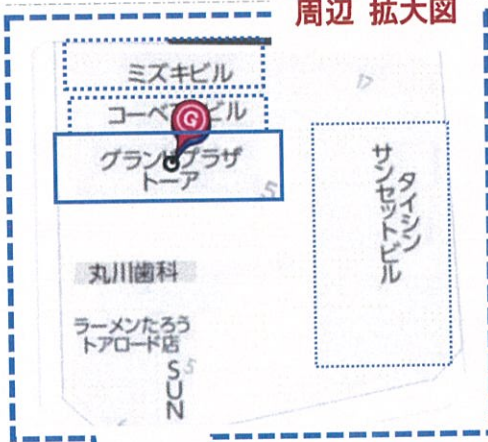 周辺 拡大図
ミズキビル
コーベ
ビル
G
グランドプラザ
トーア
5
タイシン
サンセットビル
丸川歯科
ラーメンたろう
トアロード店
5
SUN